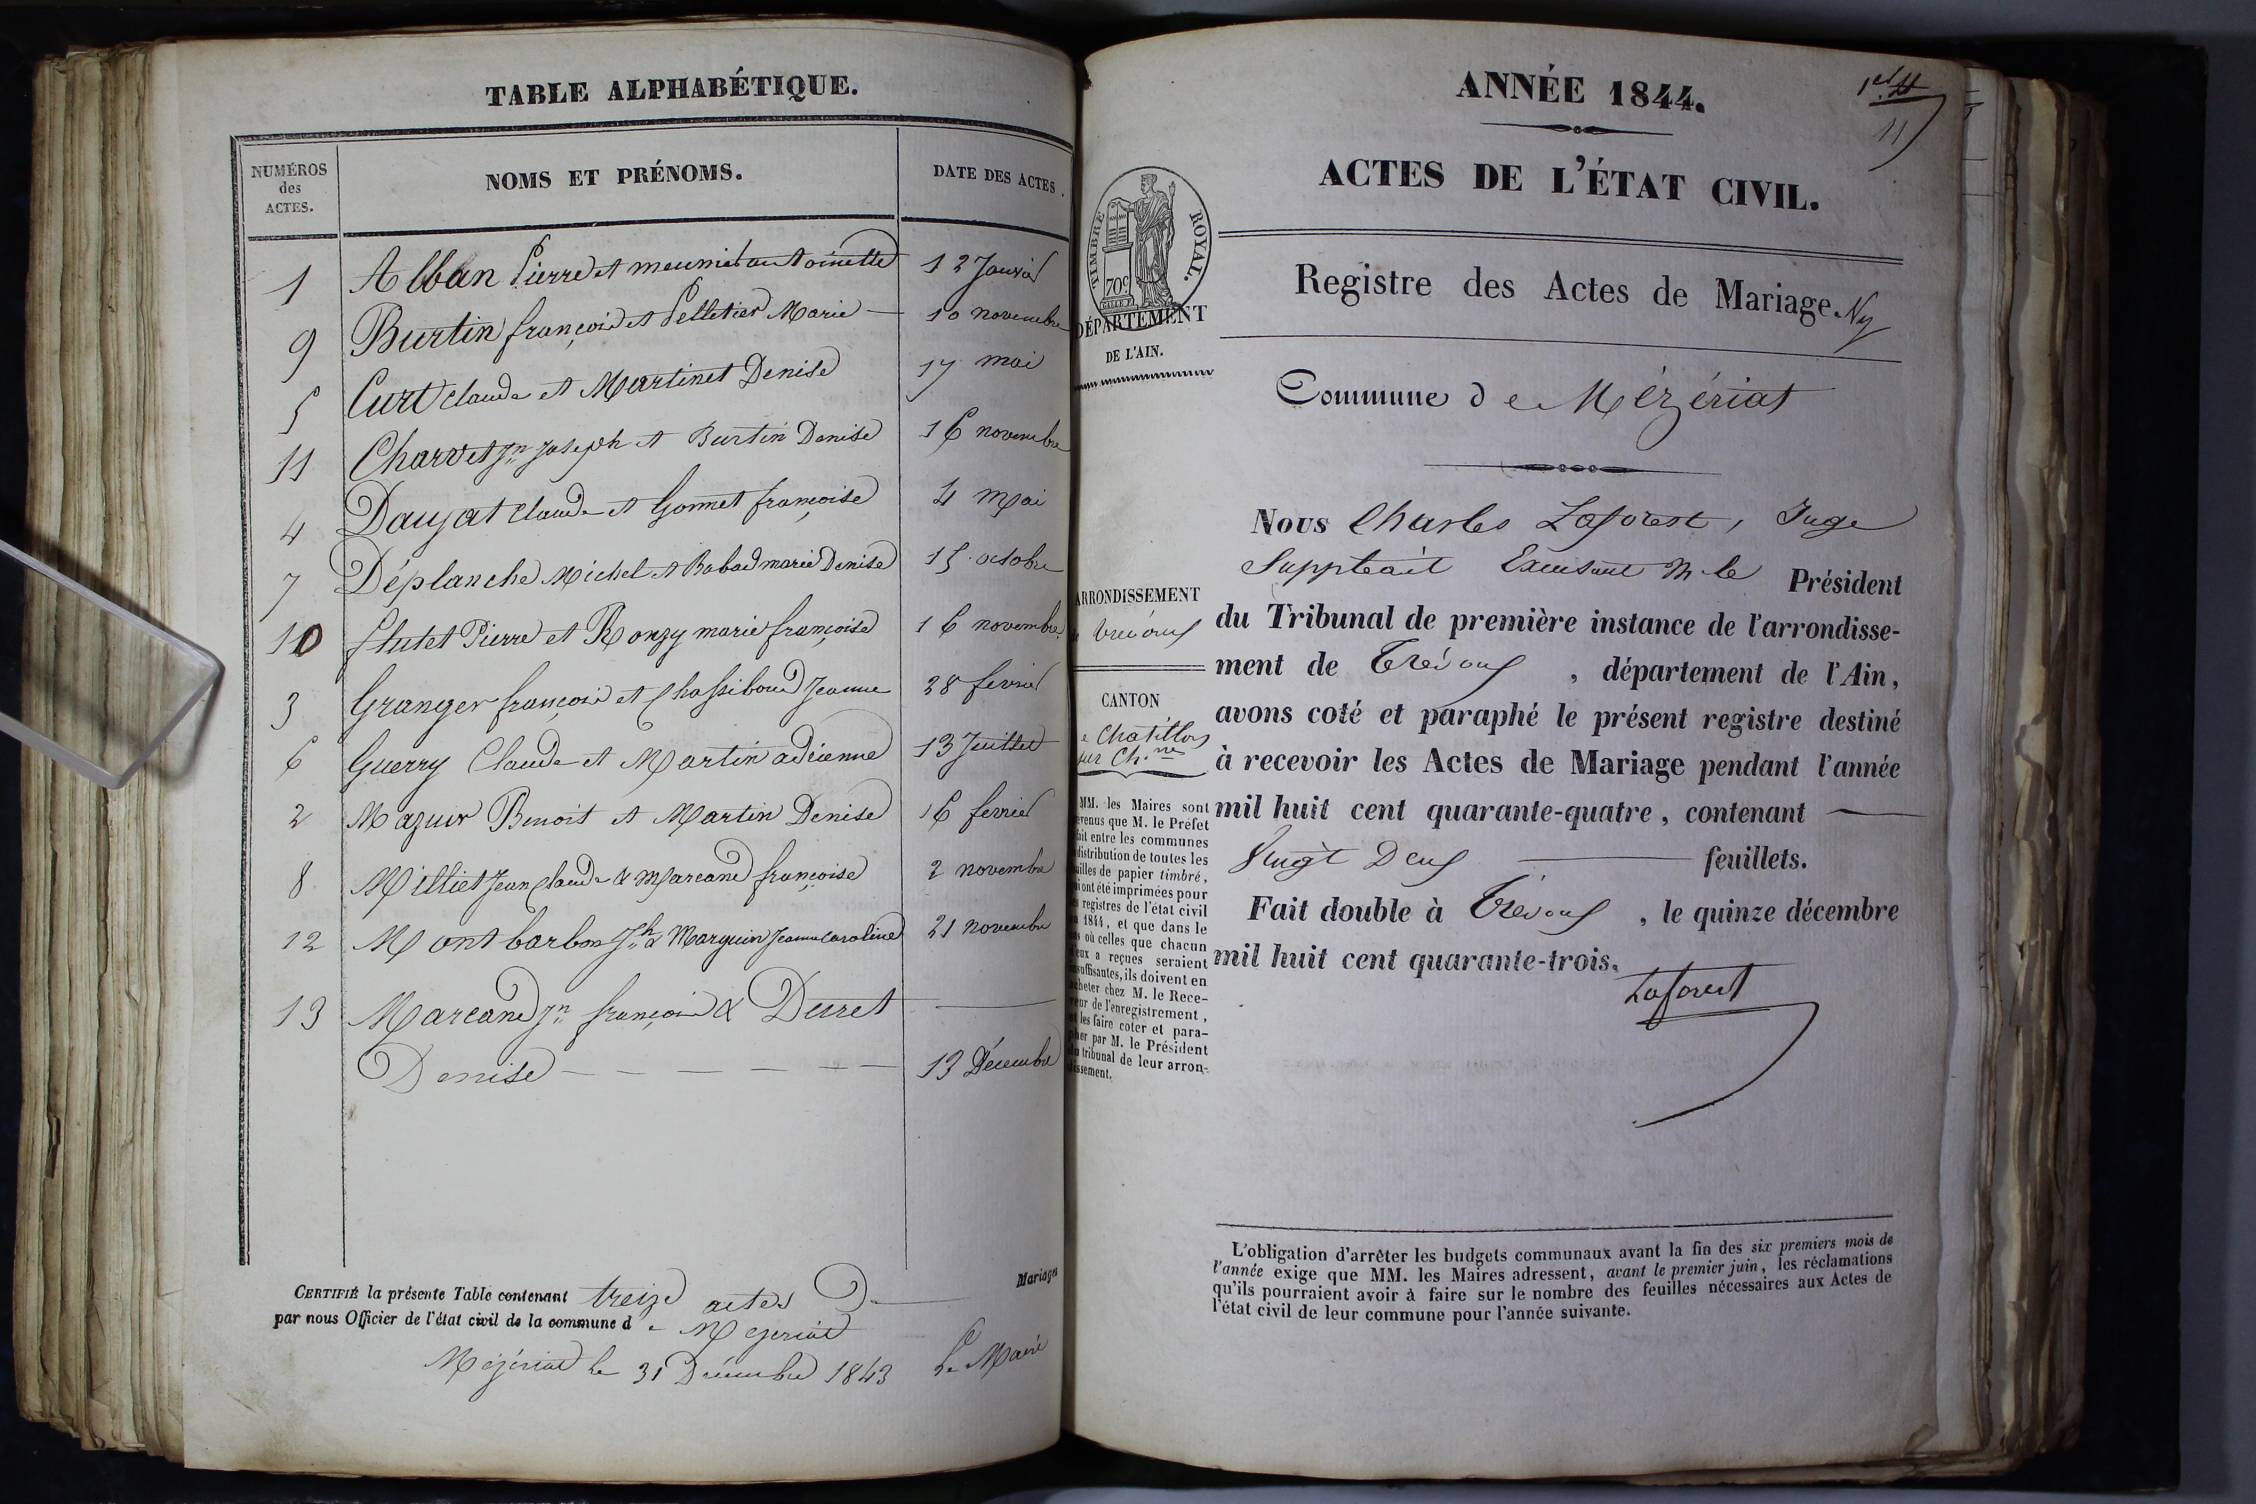 TABLE ALPHABÉTIQUE.
NUMÉROS des ACTES.
NOMS ET PRÉNOMS.
DATE DES ACTES.
1 Alban Pierre et meunier antoinette 12 Janvier
9 Burtin françois et Pelletier Marie — 10 novembre
5 Curt claude et Martinet Denise 17 mai
11 Charvet Jn Joseph et Burtin Denise 16 novembre
4 Daujat claude et Gonnet françoise 4 Mai
7 Déplanche Michel et Rabad marie Denise 15 octobre
10 flutet Pierre et Ronzy marie françoise 16 novembre
3 Granger françois et Chassiboud Jeanne 28 fevrier
6 Guerry Claude et Martin adrienne 13 Juillet
2 Mazuir Benoit et Martin Denise 16 fevrier
8 Milliet Jean Claude & Marcand françoise 2 novembre
12 Montbarbon Jh & Marguin Jeanne caroline 21 novembre
13 Marcand Jn françois & Duret —
Denise — — — — — — 13 Décembre
CERTIFIÉ la présente Table contenant treize actes D— Mariages
par nous Officier de l'état civil de la commune de Mezeriat
Mézériat le 31 Décembre 1843 Le Maire
1er
11
ANNÉE 1844.
ACTES DE L'ÉTAT CIVIL.
TIMBRE ROYAL.
70c
DÉPARTEMENT
DE L'AIN.
Registre des Actes de Mariage.
Commune de Mézériat
Nous Charles Laforest, Juge
Suppléait Excusant M. le Président
du Tribunal de première instance de l'arrondisse-
ment de Trévoux, département de l'Ain,
avons coté et paraphé le présent registre destiné
à recevoir les Actes de Mariage pendant l'année
mil huit cent quarante-quatre, contenant —
Vingt Deux — feuillets.
Fait double à Trévoux, le quinze décembre
mil huit cent quarante-trois.
Laforest
ARRONDISSEMENT
de Trévoux
CANTON
de Chatillon
sur Ch.ne
MM. les Maires sont
prévenus que M. le Préfet
fait entre les communes
distribution de toutes les
feuilles de papier timbré,
qui ont été imprimées pour
les registres de l'état civil
en 1844, et que dans le
cas où celles que chacun
d'eux a reçues seraient
insuffisantes, ils doivent en
acheter chez M. le Rece-
veur de l'enregistrement,
et les faire coter et para-
pher par M. le Président
du tribunal de leur arron-
dissement.
L'obligation d'arrêter les budgets communaux avant la fin des six premiers mois de
l'année exige que MM. les Maires adressent, avant le premier juin, les réclamations
qu'ils pourraient avoir à faire sur le nombre des feuilles nécessaires aux Actes de
l'état civil de leur commune pour l'année suivante.